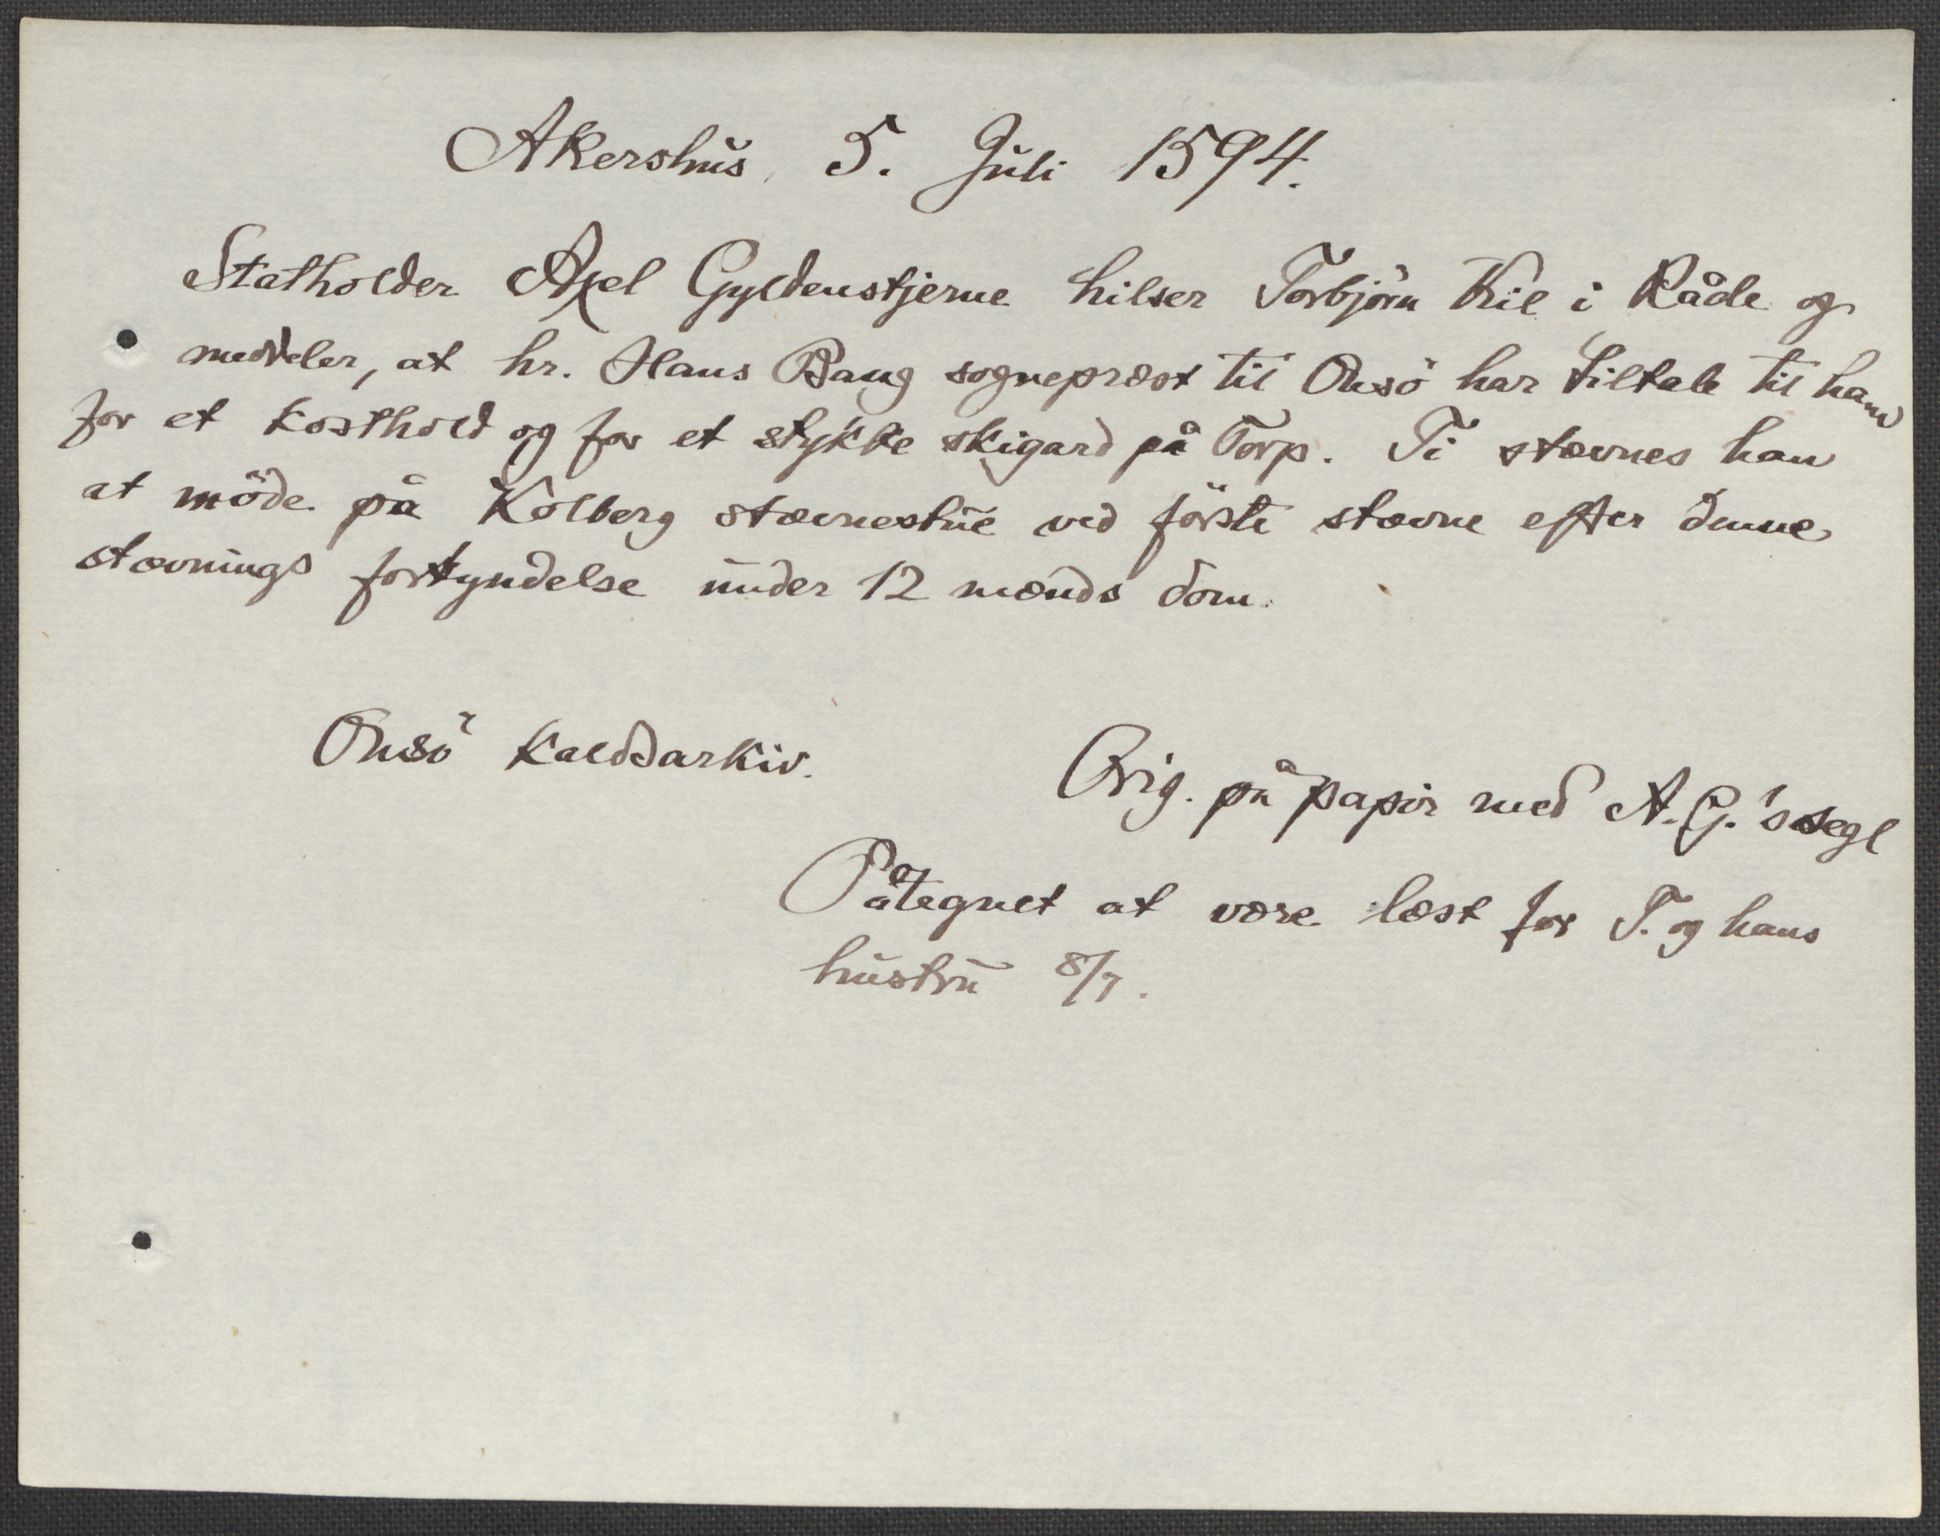 Akershus, 5. Juli 1594.
Statholder Axel Gyldenstjerne hilser Torbjörn Kil i Råde og
meddeler, at hr. Hans Bang sognepræst til Onsö har tiltale til ham
for et kosthold og for et stykke skigard på Torp. Ti stævnes han
at möde på Kolberg stævnestue ved förste stævne efter denne
stævnings forkyndelse under 12 mænds dom.
Onsö kaldsarkiv.
Orig. på papir med A. G.'s segl
Påtegnet at være læst for T. og hans
hustru 8/7.